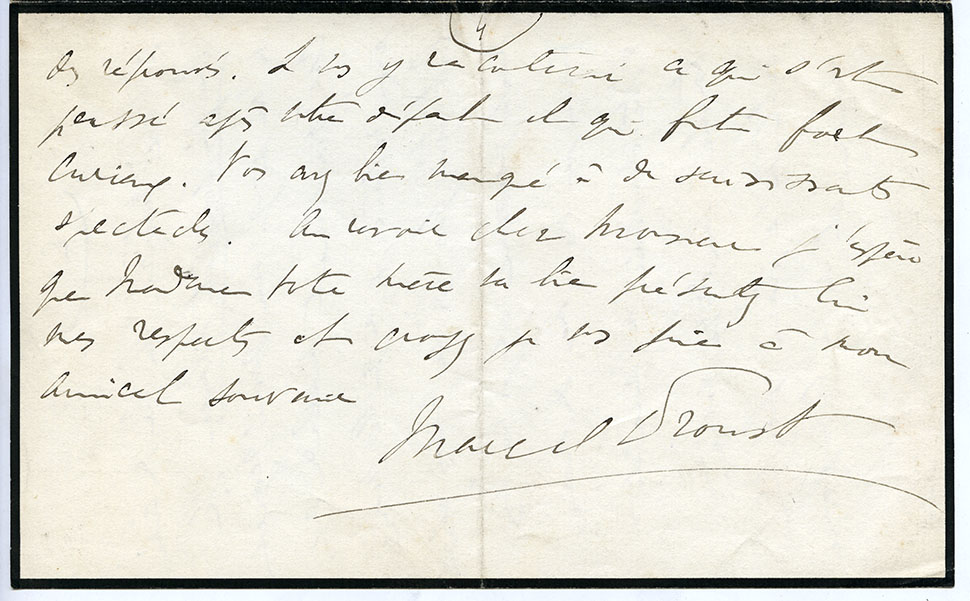 4
des réprouvés. Je vs y raconterai ce qui s'est
passé après votre départ et qui fut fort
curieux. Vos avez bien manqué à de saisissants
spectacles. Au revoir cher Monsieur j'espère
que Madame votre mère va bien présentez lui
mes respects et croyez je vs prie à mon
amical souvenir
Marcel Proust